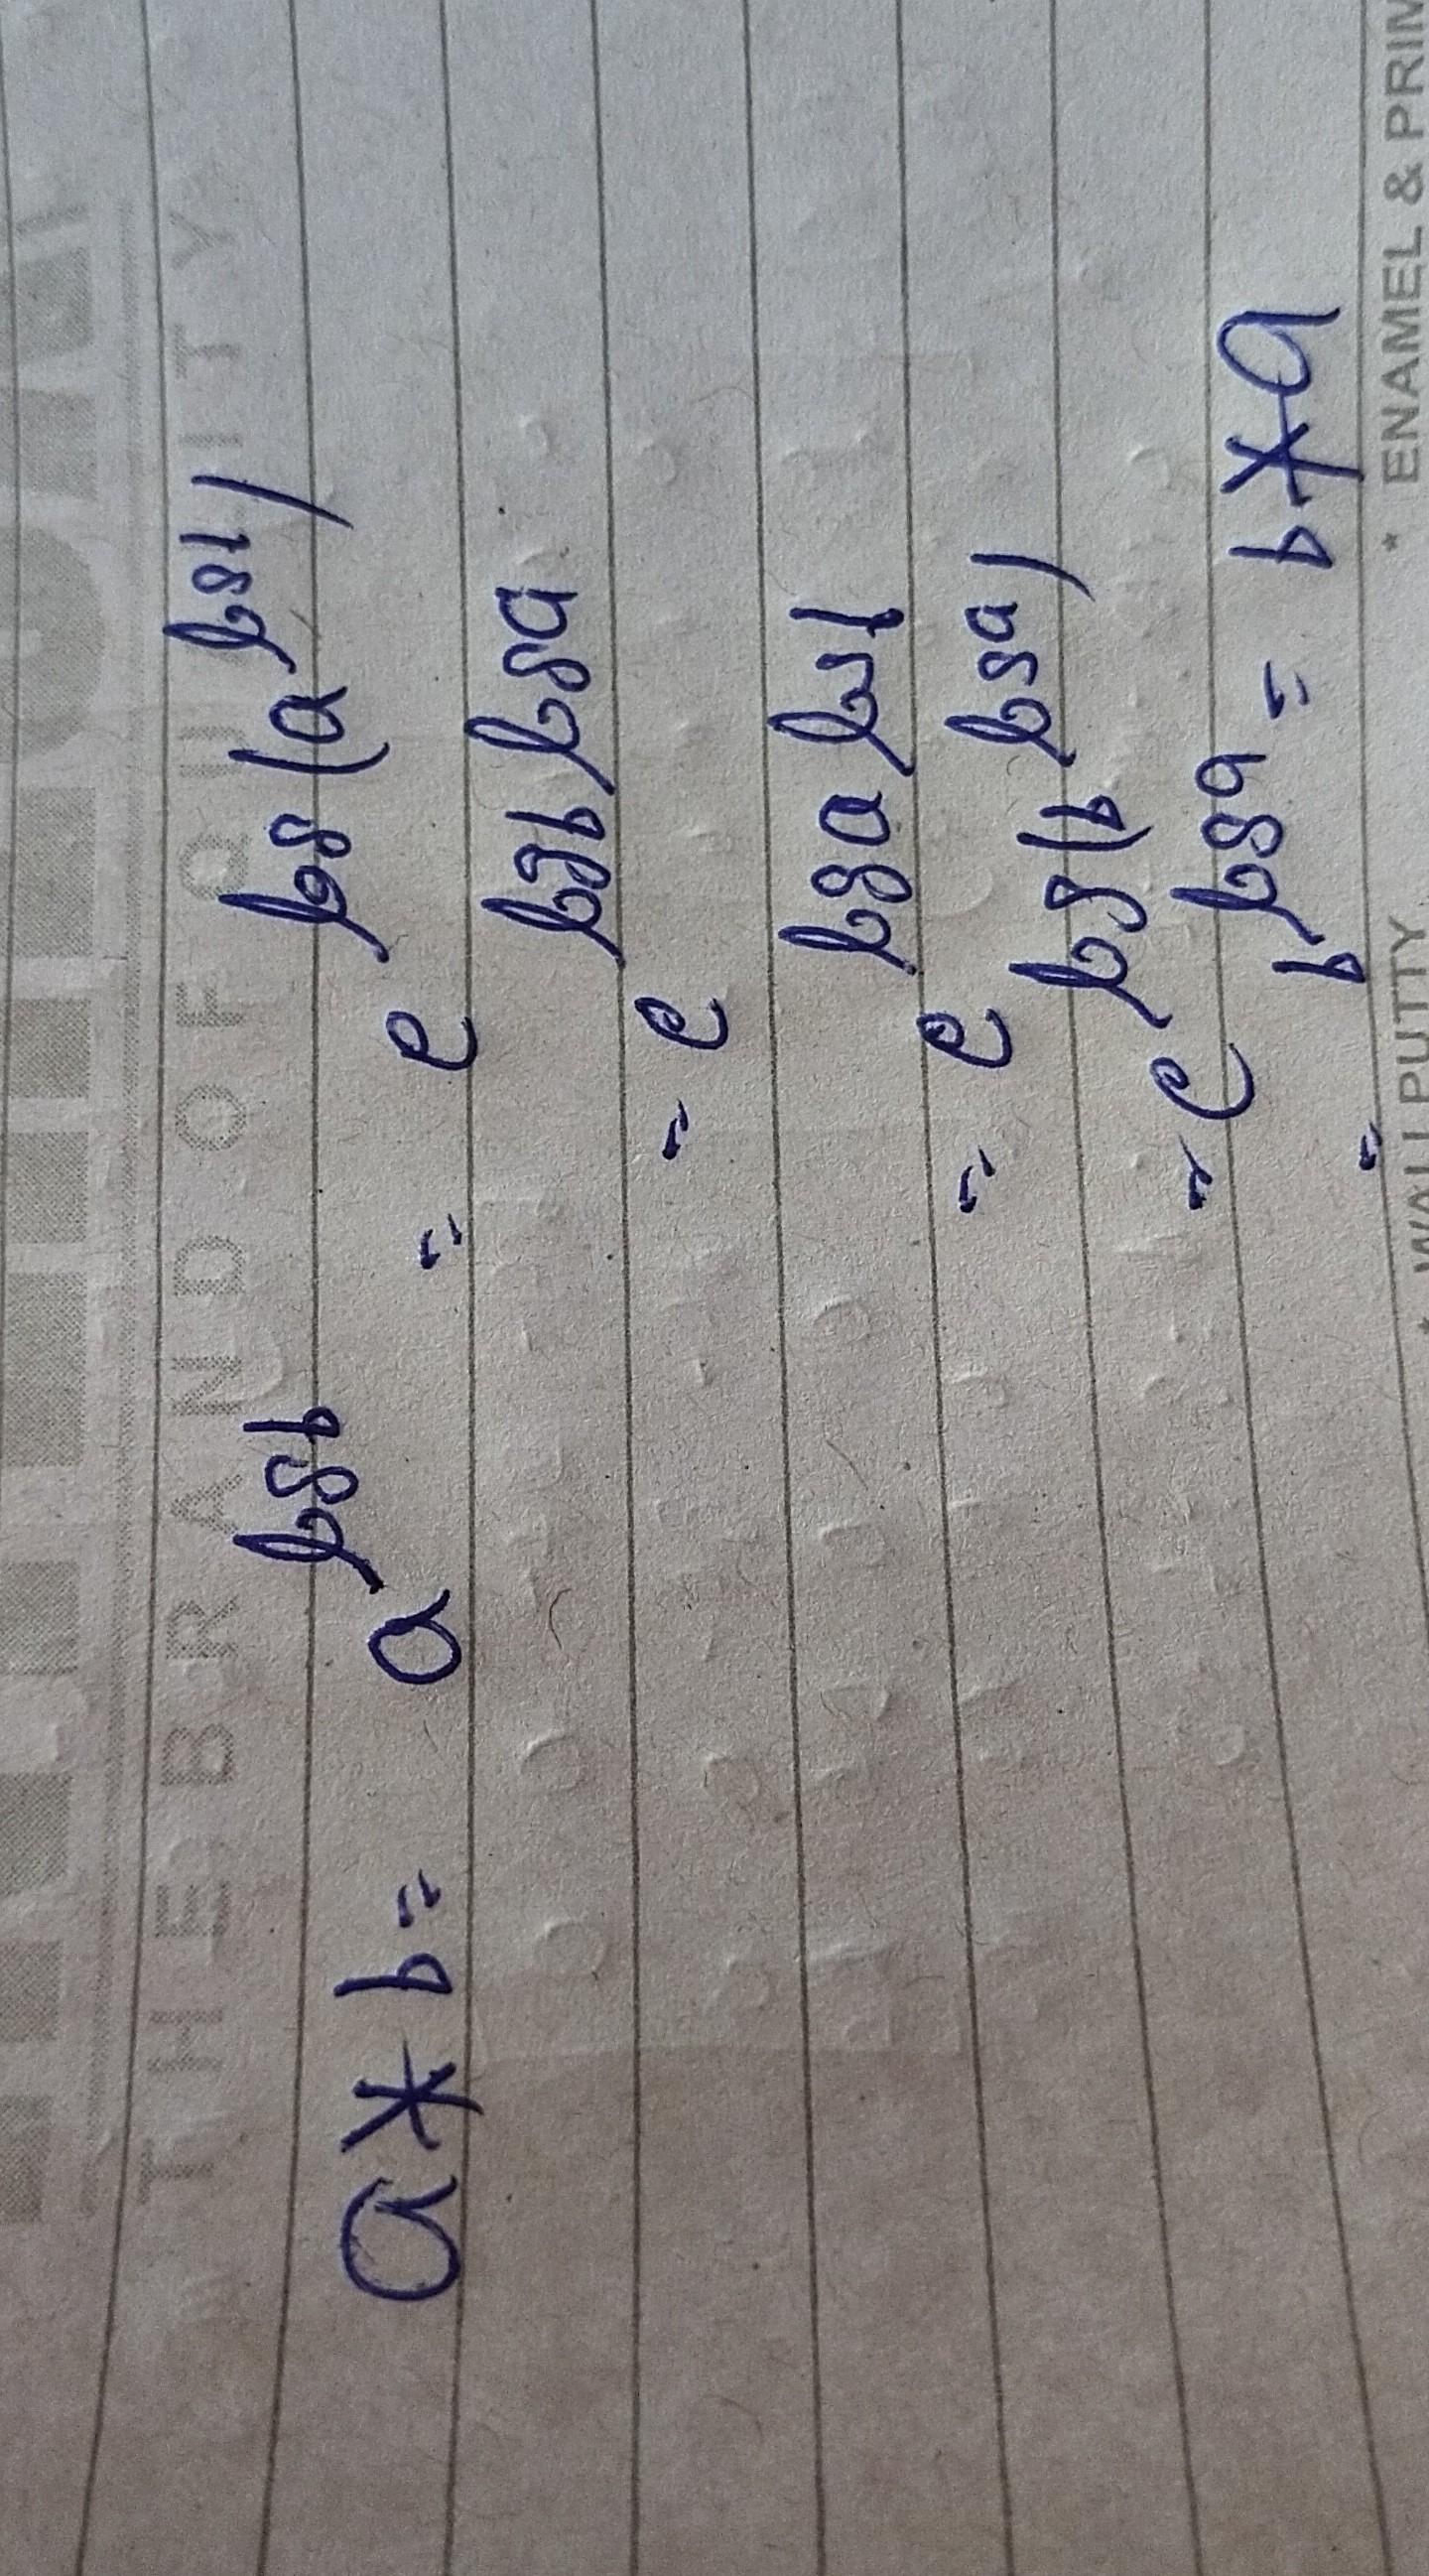 THE BRAND OF QUALITY
a * b = a^{log b} = e^{log(a^{log b})}
= e^{log b log a}
= e^{log a log b}
= e^{log(b^{log a})}
= b^{log a} = b * a
* WALL PUTTY * ENAMEL &